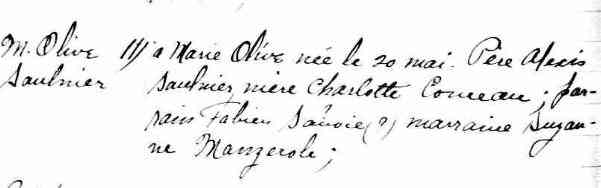 M. Olive III/a Marie Olive née le 20 mai. Père Alexis
Saulnier Saulnier, mère Charlotte Comeau; par-
rain Fabien Savoie (?) marraine Suzan-
ne Mangerole;